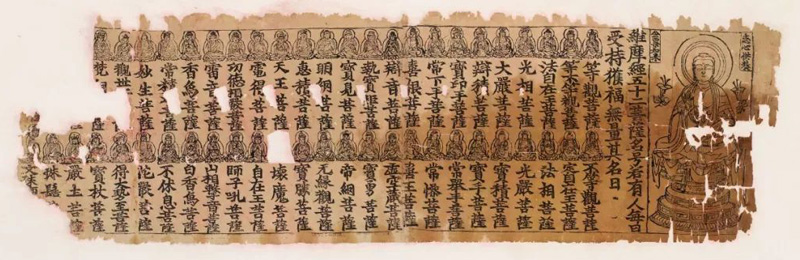 志心供養
維摩經五十二菩薩名号若有人每日
受持獲福無量其名曰
等觀菩薩
不等觀菩薩
等不等觀菩薩
定自在王菩薩
法自在王菩薩
法相菩薩
光相菩薩
光嚴菩薩
大嚴菩薩
寶積菩薩
辯積菩薩
寶手菩薩
寶印手菩薩
常舉手菩薩
常下手菩薩
常慘菩薩
喜根菩薩
喜王菩薩
辯音菩薩
虛空藏菩薩
執寶炬菩薩
寶勇菩薩
寶見菩薩
帝網菩薩
明網菩薩
无緣觀菩薩
惠積菩薩
寶勝菩薩
天王菩薩
壞魔菩薩
電得菩薩
自在王菩薩
功德相嚴菩薩
師子吼菩薩
雷音菩薩
山相擊音菩薩
香象菩薩
白香象菩薩
常精菩薩
不休息菩薩
妙生菩薩
花嚴菩薩
觀世
得大勢菩薩
梵
寶杖菩薩
嚴土菩薩
珠髻
文殊